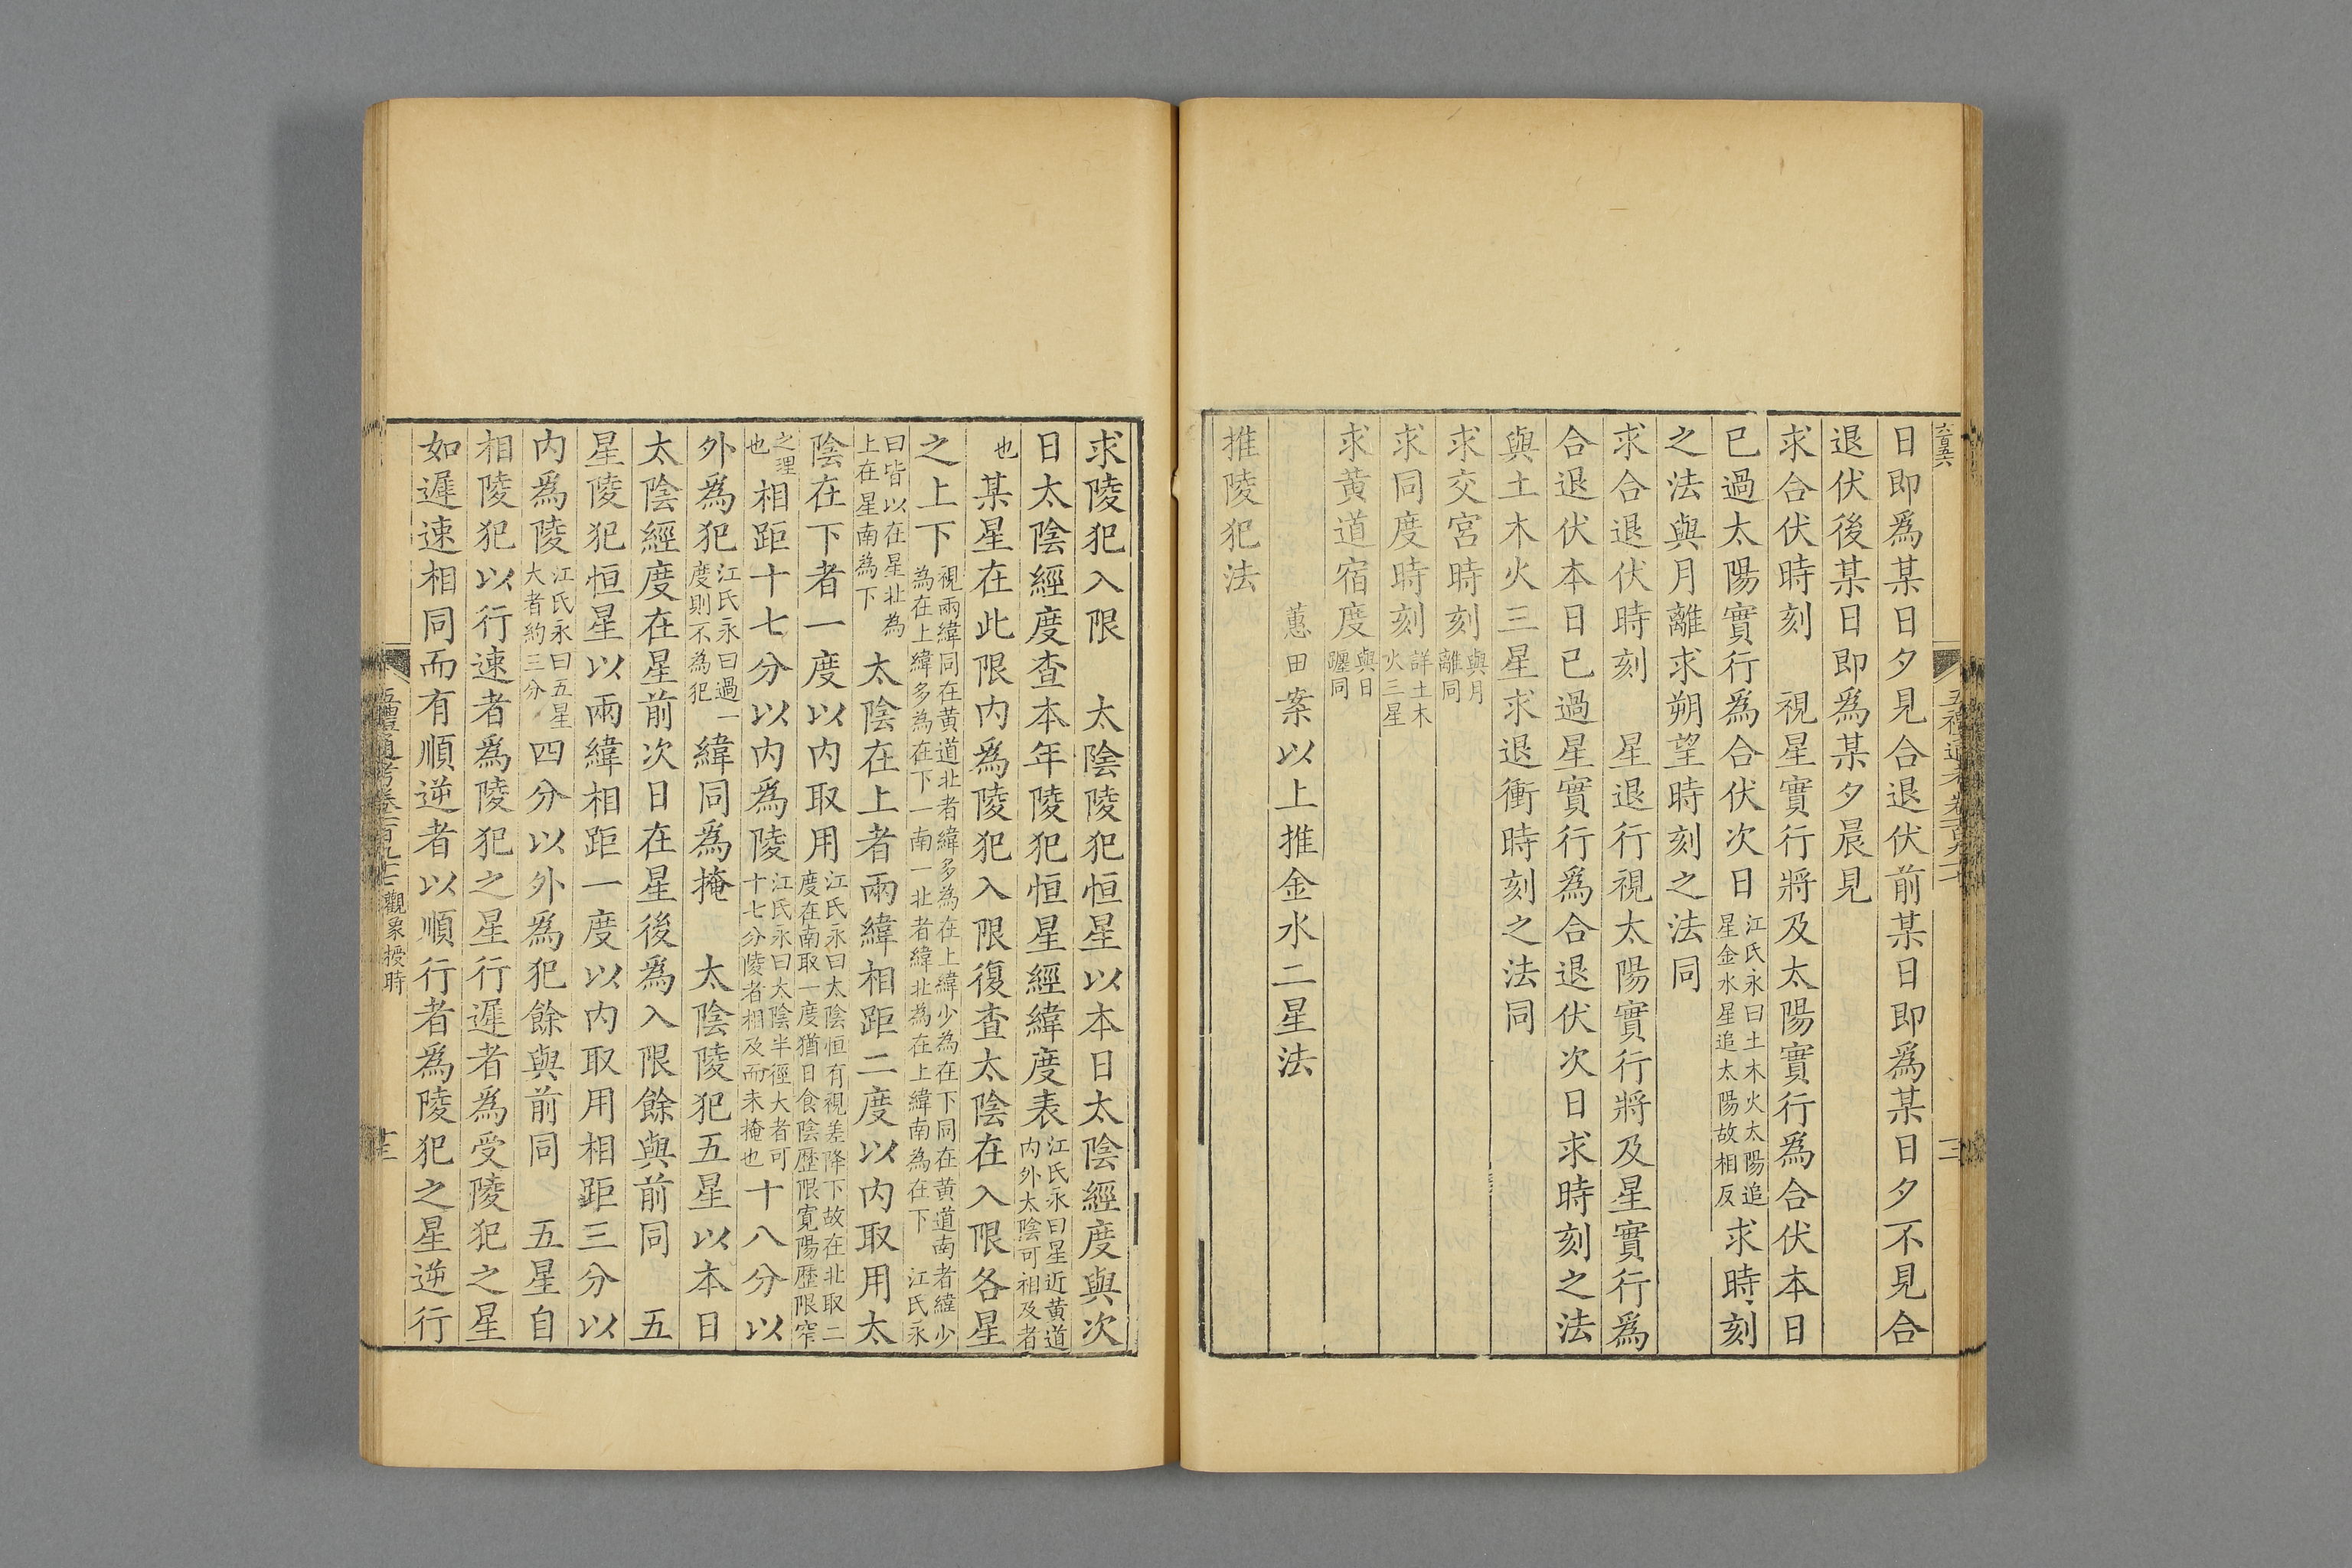 日即爲某日夕見合退伏前某日即爲某日夕不見合
退伏後某日即爲某夕晨見
求合伏時刻　視星實行將及太陽實行爲合伏本日
已過太陽實行爲合伏次日江氏永曰土木火太陽追星金水星追太陽故相反求時刻
之法與月離求朔望時刻之法同
求合退伏時刻　星退行視太陽實行將及星實行爲
合退伏本日已過星實行爲合退伏次日求時刻之法
與土木火三星求退衝時刻之法同
求交宮時刻與月離同
求同度時刻詳土木火三星
求黃道宿度與日躔同
蕙田案以上推金水二星法
推陵犯法
求陵犯入限　太陰陵犯恒星以本日太陰經度與次
日太陰經度查本年陵犯恒星經緯度表江氏永曰星近黃道內外太陰可相及者
也某星在此限內爲陵犯入限復查太陰在入限各星
之上下視兩緯同在黃道北者緯多為在上緯少為在下同在黃道南者緯少為在上緯多為在下一南一北者緯北為在上緯南為在下　江氏永
曰皆以在星北為上在星南為下　太陰在上者兩緯相距二度以內取用太
陰在下者一度以內取用江氏永曰太陰恒有視差降下故在北取二度在南取一度猶日食陰歷限寬陽歷限窄
之理也相距十七分以內爲陵江氏永曰太陰半徑大者可十七分陵者相及而未掩也十八分以
外爲犯江氏永曰過一度則不為犯緯同爲掩　太陰陵犯五星以本日
太陰經度在星前次日在星後爲入限餘與前同　五
星陵犯恒星以兩緯相距一度以內取用相距三分以
內爲陵江氏永曰五星大者約三分四分以外爲犯餘與前同　五星自
相陵犯以行速者爲陵犯之星行遲者爲受陵犯之星
如遲速相同而有順逆者以順行者爲陵犯之星逆行
五禮通考卷一百九十二　觀象授時